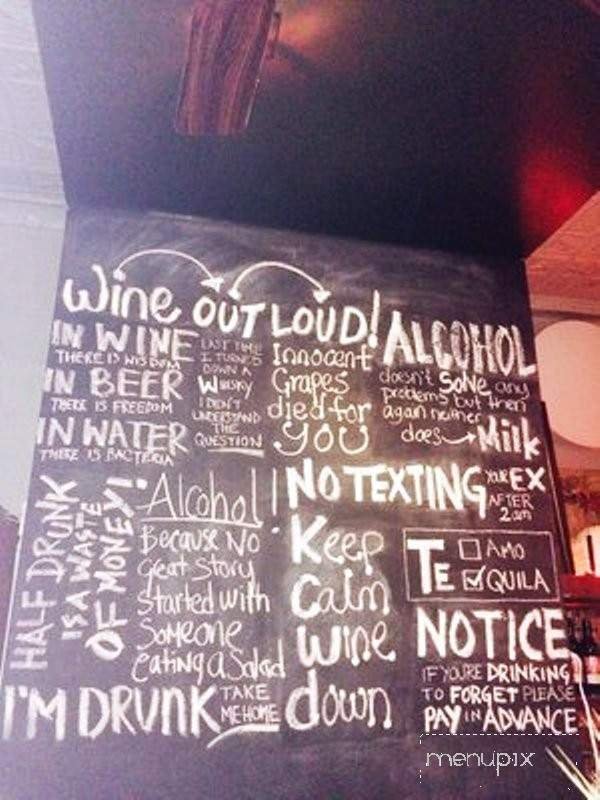 Wine OUT LOUD!
IN WINE
THERE IS WISDOM
IN BEER
THERE IS FREEDOM
IN WATER
THERE IS BACTERIA
LAST TIME
I TURNED
DOWN A
WHISKY
I DIDN'T
UNDERSTAND
THE
QUESTION
Innocent
Grapes
died for
you
ALCOHOL
doesn't Solve any
problems but then
again neither
does → Milk
HALF DRUNK
IS A WASTE
OF MONEY!
Alcohol!
Because No
great Story
Started with
Someone
eating a Salad
NO TEXTING
YOUR EX
AFTER
2am
Keep
Calm
Wine
down
TE
AMO
QUILA
NOTICE
IF YOU'RE DRINKING
TO FORGET PLEASE
PAY IN ADVANCE
I'M DRUNK
TAKE
ME HOME
menupix